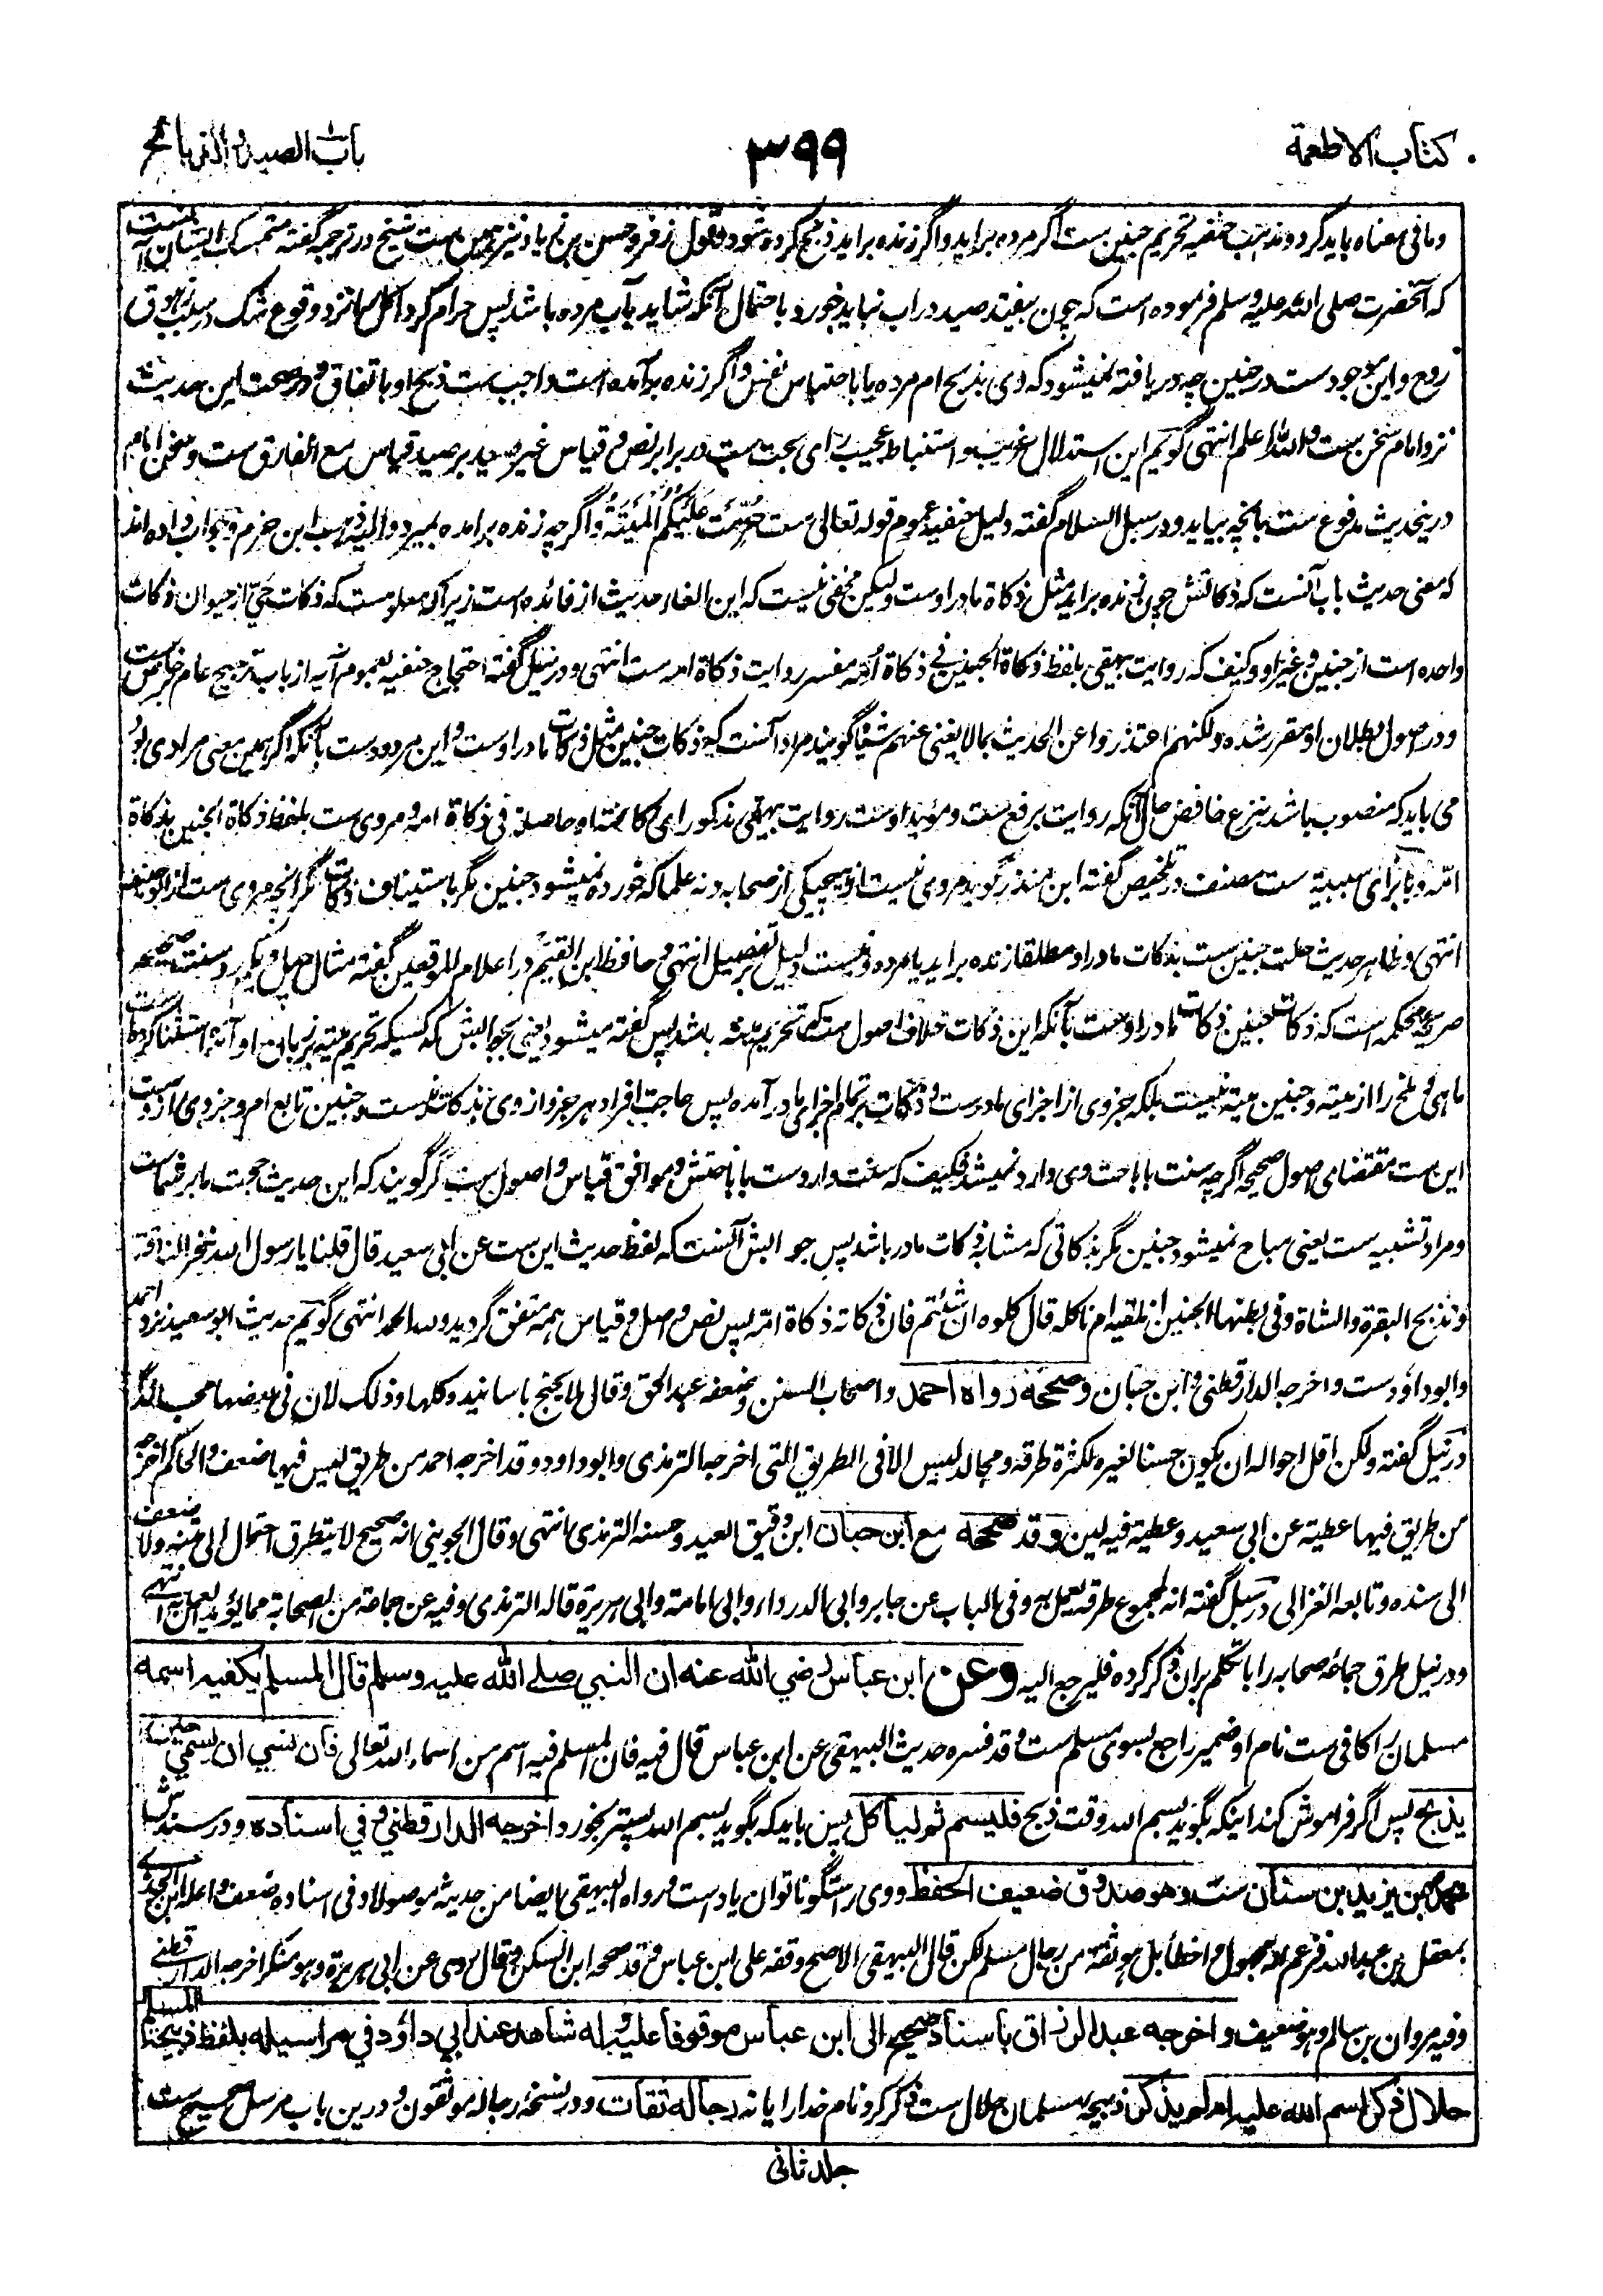 كتاب الاطعمة
۳۹۹
باب الصيد والذبائح
وما فى معناه باید کرد و مذہب حنفیہ تحریم جنین ست اگر مردہ براید واگر زندہ براید ذبح کردہ شود و قول زفر و حسن بن زیاد نیز ہمین ست شیخ در ترجمہ گفتہ متمسک ایشان آنست
کہ آنحضرت صلی اللہ علیہ وسلم فرمودہ است کہ چون بیفتد صید در اب نباید خورد باحتمال آنکہ شاید بآب مردہ باشد پس حرام گرد اکل نزد وقوع شک در سبب زہوق
روح و این موجود ست در جنین چہ دریافتہ نمیشود کہ وی بذبح ام مردہ یا باحتباس نفس واگر زندہ برآمدہ است واجب ست ذبح او باتفاق و در صحت این حدیث
نزد امام سخن ست واللہ اعلم انتہی گویم این استدلال غریب و استنباط عجیب رای بحت ست در برابر نص و قیاس غیر صید بر صید قیاس مع الفارق ست و سخن امام
درینحدیث مدفوع ست بانچہ بیاید و در سبل السلام گفتہ دلیل حنفیہ عموم قولہ تعالی ست حُرِّمَتْ عَلَيْكُمُ الْمَيْتَةُ واگرچہ زندہ برامدہ بمیرد والیہ ذہب ابن حزم وجواب دادہ اند
کہ معنی حدیث باب آنست کہ ذکاتش چون زندہ براید مثل ذکاۃ مادر اوست ولیکن مخفی نیست کہ این الغاء حدیث از فائدہ است زیراکہ معلومست کہ ذکات حَیّ از حیوان ذکات
واحدہ است از جنین و غیر او وکیف کہ روایت بیہقی بلفظ ذکاۃ الجنین فی ذکاۃ اُمِّہ مفسر روایت ذکاۃ امہ ست انتہی و در نیل گفتہ احتجاج حنفیہ بعموم آیہ از باب ترجیح عام بر خاص ست
و در اصول بطلان او مقرر شدہ ولکنہم اعتذروا عن الحدیث بما لا یغنی عنہم شیئا گویند مراد آنست کہ ذکات جنین مثل ذکات مادر اوست و این مردودست بانکہ اگر ہمین معنی مرادی بود
می باید کہ منصوب باشد بنزع خافض حال آنکہ روایت برفع ست و مؤید اوست روایت بیہقی مذکور ای کائنة او حاصلة فی ذکاۃ امہ و مروی ست بلفظ ذکاۃ الجنین بذکاۃ
امّہ و با برای سببیۃ ست مصنف در تلخیص گفتہ ابن منذر گوید مروی نیست از ہیچیکی از صحابہ و نہ علما کہ خوردہ نمیشود جنین مگر باستیناف ذکات مگر انچہ مروی ست از ابوحنیفہ
انتہی و ظاہر حدیث حلت جنین ست بذکات مادر او مطلقا زندہ براید یا مردہ و نیست دلیل بر تفصیل انتہی و حافظ ابن القیم در اعلام الموقعین گفتہ مثال چہل و یکم رد سنت صحیحہ
صریحہ محکمہ است کہ ذکات جنین ذکات مادر اوست بآنکہ این ذکات خلاف اصول ست کہ تحریم میتہ باشد پس گفتہ میشود یعنی بجوابش کہ کسیکہ تحریم میتہ بر زبان او آمدہ استثنا کردہ است
ماہی و ملخ را از میتہ و جنین میتہ نیست بلکہ جزوی از اجزای مادرست و ذکات بر تمام اجزای مادر آمدہ پس حاجت افراد ہر جزو از وی بذکات نیست و جنین تابع ام و جزوی از وست
این ست مقتضای اصول صحیحہ اگرچہ سنت باباحت وی وارد نمیشد فکیف کہ سنت واردست باباحتش و موافق قیاس و اصول ست گر گویند کہ این حدیث حجت ما بر شماست
و مراد تشبیہ ست یعنی مباح نمیشود جنین مگر بذکاتی کہ مشابہ ذکات مادر باشد پس جوابش آنست کہ لفظ حدیث این ست عن ابی سعید قال قلنا یا رسول اللہ ننحر الناقۃ
و نذبح البقرۃ والشاۃ و فی بطنہا الجنین انلقیہ ام ناکلہ قال کلوہ ان شئتم فان ذکاتہ ذکاۃ امہ پس نص و اصل و قیاس ہمہ متفق گردید وللہ الحمد انتہی گویم حدیث ابوسعید نزد احمد
و ابوداؤد ست و اخرجہ الدارقطنی و ابن حبان وصححه رواه احمد واصحاب السنن وضعفہ عبد الحق وقال لا یحتج باسانیدہ کلہا وذلک لان فی بعضہا مجالد
در نیل گفتہ ولکن اقل احوالہ ان یکون حسنا لغیرہ لکثرۃ طرقہ و مجالد لیس الا فی الطریق التی اخرجہا الترمذی و ابوداود و قد اخرجہ احمد من طریق لیس فیہا ضعف والحاکم اخرجہ
من طریق فیہا عطیۃ عن ابی سعید و عطیۃ فیہ لین وقد صححه مع ابن حبان ابن دقیق العید و حسنہ الترمذی انتہی وقال الجوینی انہ صحیح لا یتطرق احتمال الی متنہ ولا ضعف
الی سندہ و تابعہ الغزالی در سبل گفتہ انہ بمجموع طرقہ یعمل بہ و فی الباب عن جابر و ابی الدرداء و ابی امامۃ و ابی ہریرۃ قالہ الترمذی و فیہ عن جماعۃ من الصحابۃ مما یؤید العمل بہ انتہی
و در نیل طرق جماعہ صحابہ را با تکلم بران ذکر کردہ فلیرجع الیہ وعن ابن عباس رضي الله عنه ان النبي صلے الله عليه وسلم قال المسلم يكفيه اسمه
مسلمان را کافی ست نام او ضمیر راجع بسوی مسلم ست وقد فسرہ حدیث البیہقی عن ابن عباس قال فیہ فان المسلم فیہ اسم من اسماء اللہ تعالی فان نسي ان يسمي حين
يذبح پس اگر فراموش کند اینکہ بگوید بسم اللہ وقت ذبح فليسم ثم ليأكل پس باید کہ بگوید بسم اللہ پستر بخورد اخرجه الدارقطني وفي اسناده و در سندش
محمد بن يزيد بن سنان ست وهو صدوق ضعيف الحفظ و وی راستگو ناتوان یادست و رواہ البیہقی ایضا من حدیثہ موصولا و فی اسنادہ ضعف و اعلہ ابن الجوزی
بمعقل بن عبید اللہ فزعم انہ مجہول و اخطأ بل ہو ثقۃ من رجال مسلم لکن قال البیہقی الاصح وقفہ علی ابن عباس و قد صححہ ابن السکن و قال روی عن ابی ہریرۃ و ہو منکر اخرجہ الدارقطنی
و فیہ مروان بن سالم و ہو ضعیف واخرجه عبد الرزاق باسناد صحيح الى ابن عباس موقوفا عليه وله شاهد عند ابي داؤد في مراسيله بلفظ ذبيحة المسلم
حلال ذكر اسم الله عليها ام لم يذكر ذبیحہ مسلمان حلال ست ذکر کرد نام خدا را یا نہ رجاله ثقات و در نسخہ رجالہ موثقون و درین باب مرسل صحیح ست
جلد ثانی